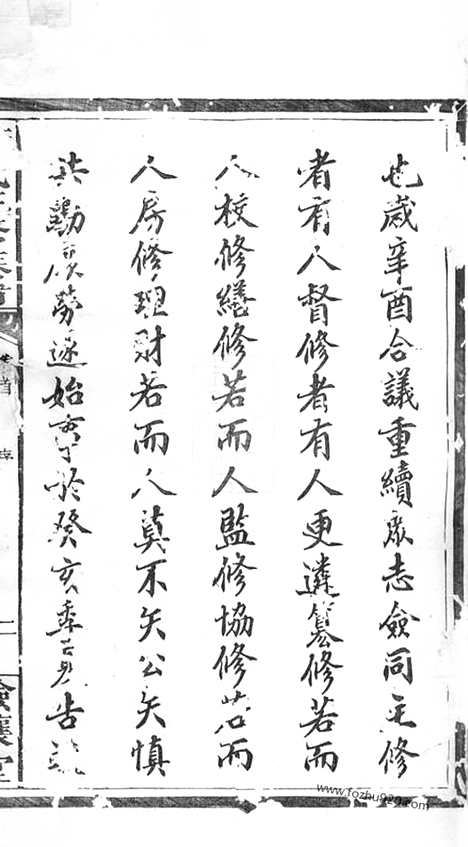 也歲辛酉合議重續眾志僉同主修
者有人督修者有人更遴纂修若而
人校修繕修若而人監修協修若而
人房修理財若而人莫不矢公矢慎
共勷厥勞遂始於癸亥季告
卷首
二
www.fozhu920.com